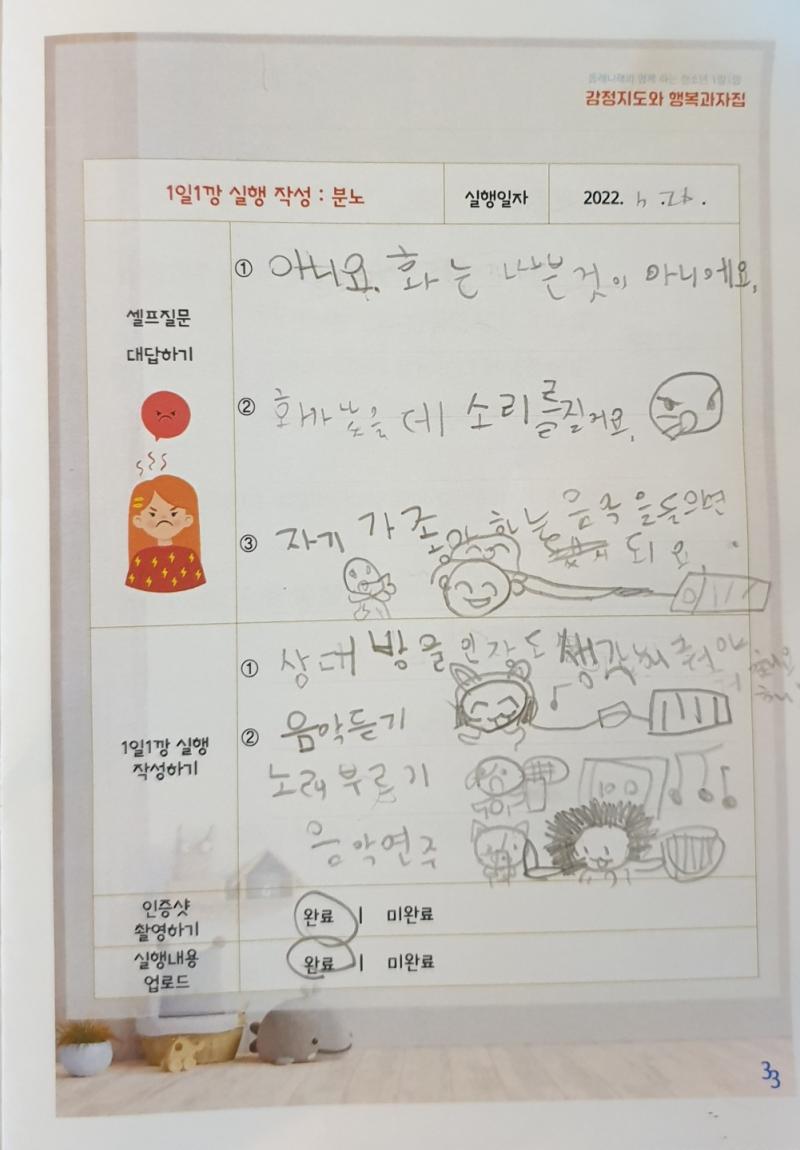 감정지도와 행복과자집
1일1깡 실행 작성 : 분노
실행일자
2022. 4
셀프질문
대답하기
① 아니요. 화 는 나쁜 것이 아니에요.
② 화가 났을 데 소리를 질러요.
③ 자기 가 좋아 하는 음악 을 들으면
되 요.
1일1깡 실행
작성하기
① 상대 방 을 인장도 생각해 줘야
② 음악듣기
노래 부르기
음악연주
100
인증샷
촬영하기
완료 | 미완료
실행내용
업로드
완료 | 미완료
33